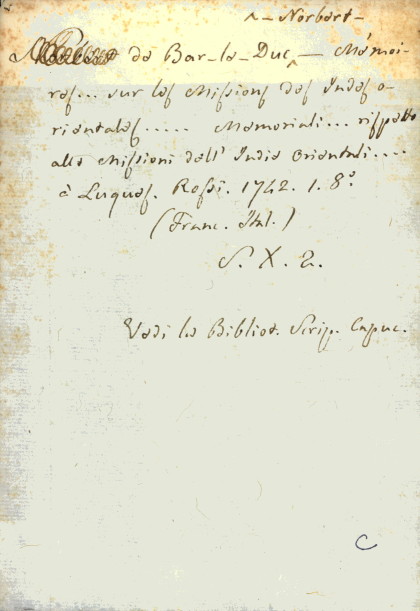 ^ - Norbert -
de Bar-le-Duc ^ — Mémoi-
res... sur les Missions des Indes o-
rientales..... Memoriali... rispetto
alle Missioni dell' Indie Orientali....
à Luques. Rossi. 1742. 1. 8.º
(Franc. Ital.)
S. X. 2.
Vedi la Bibliot. Scrip. Capuc.
C